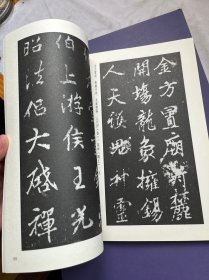 金方置廟對麓
開場龍象擁錫
人天思靈
伯上游侯王光
昭法侶大啟禪